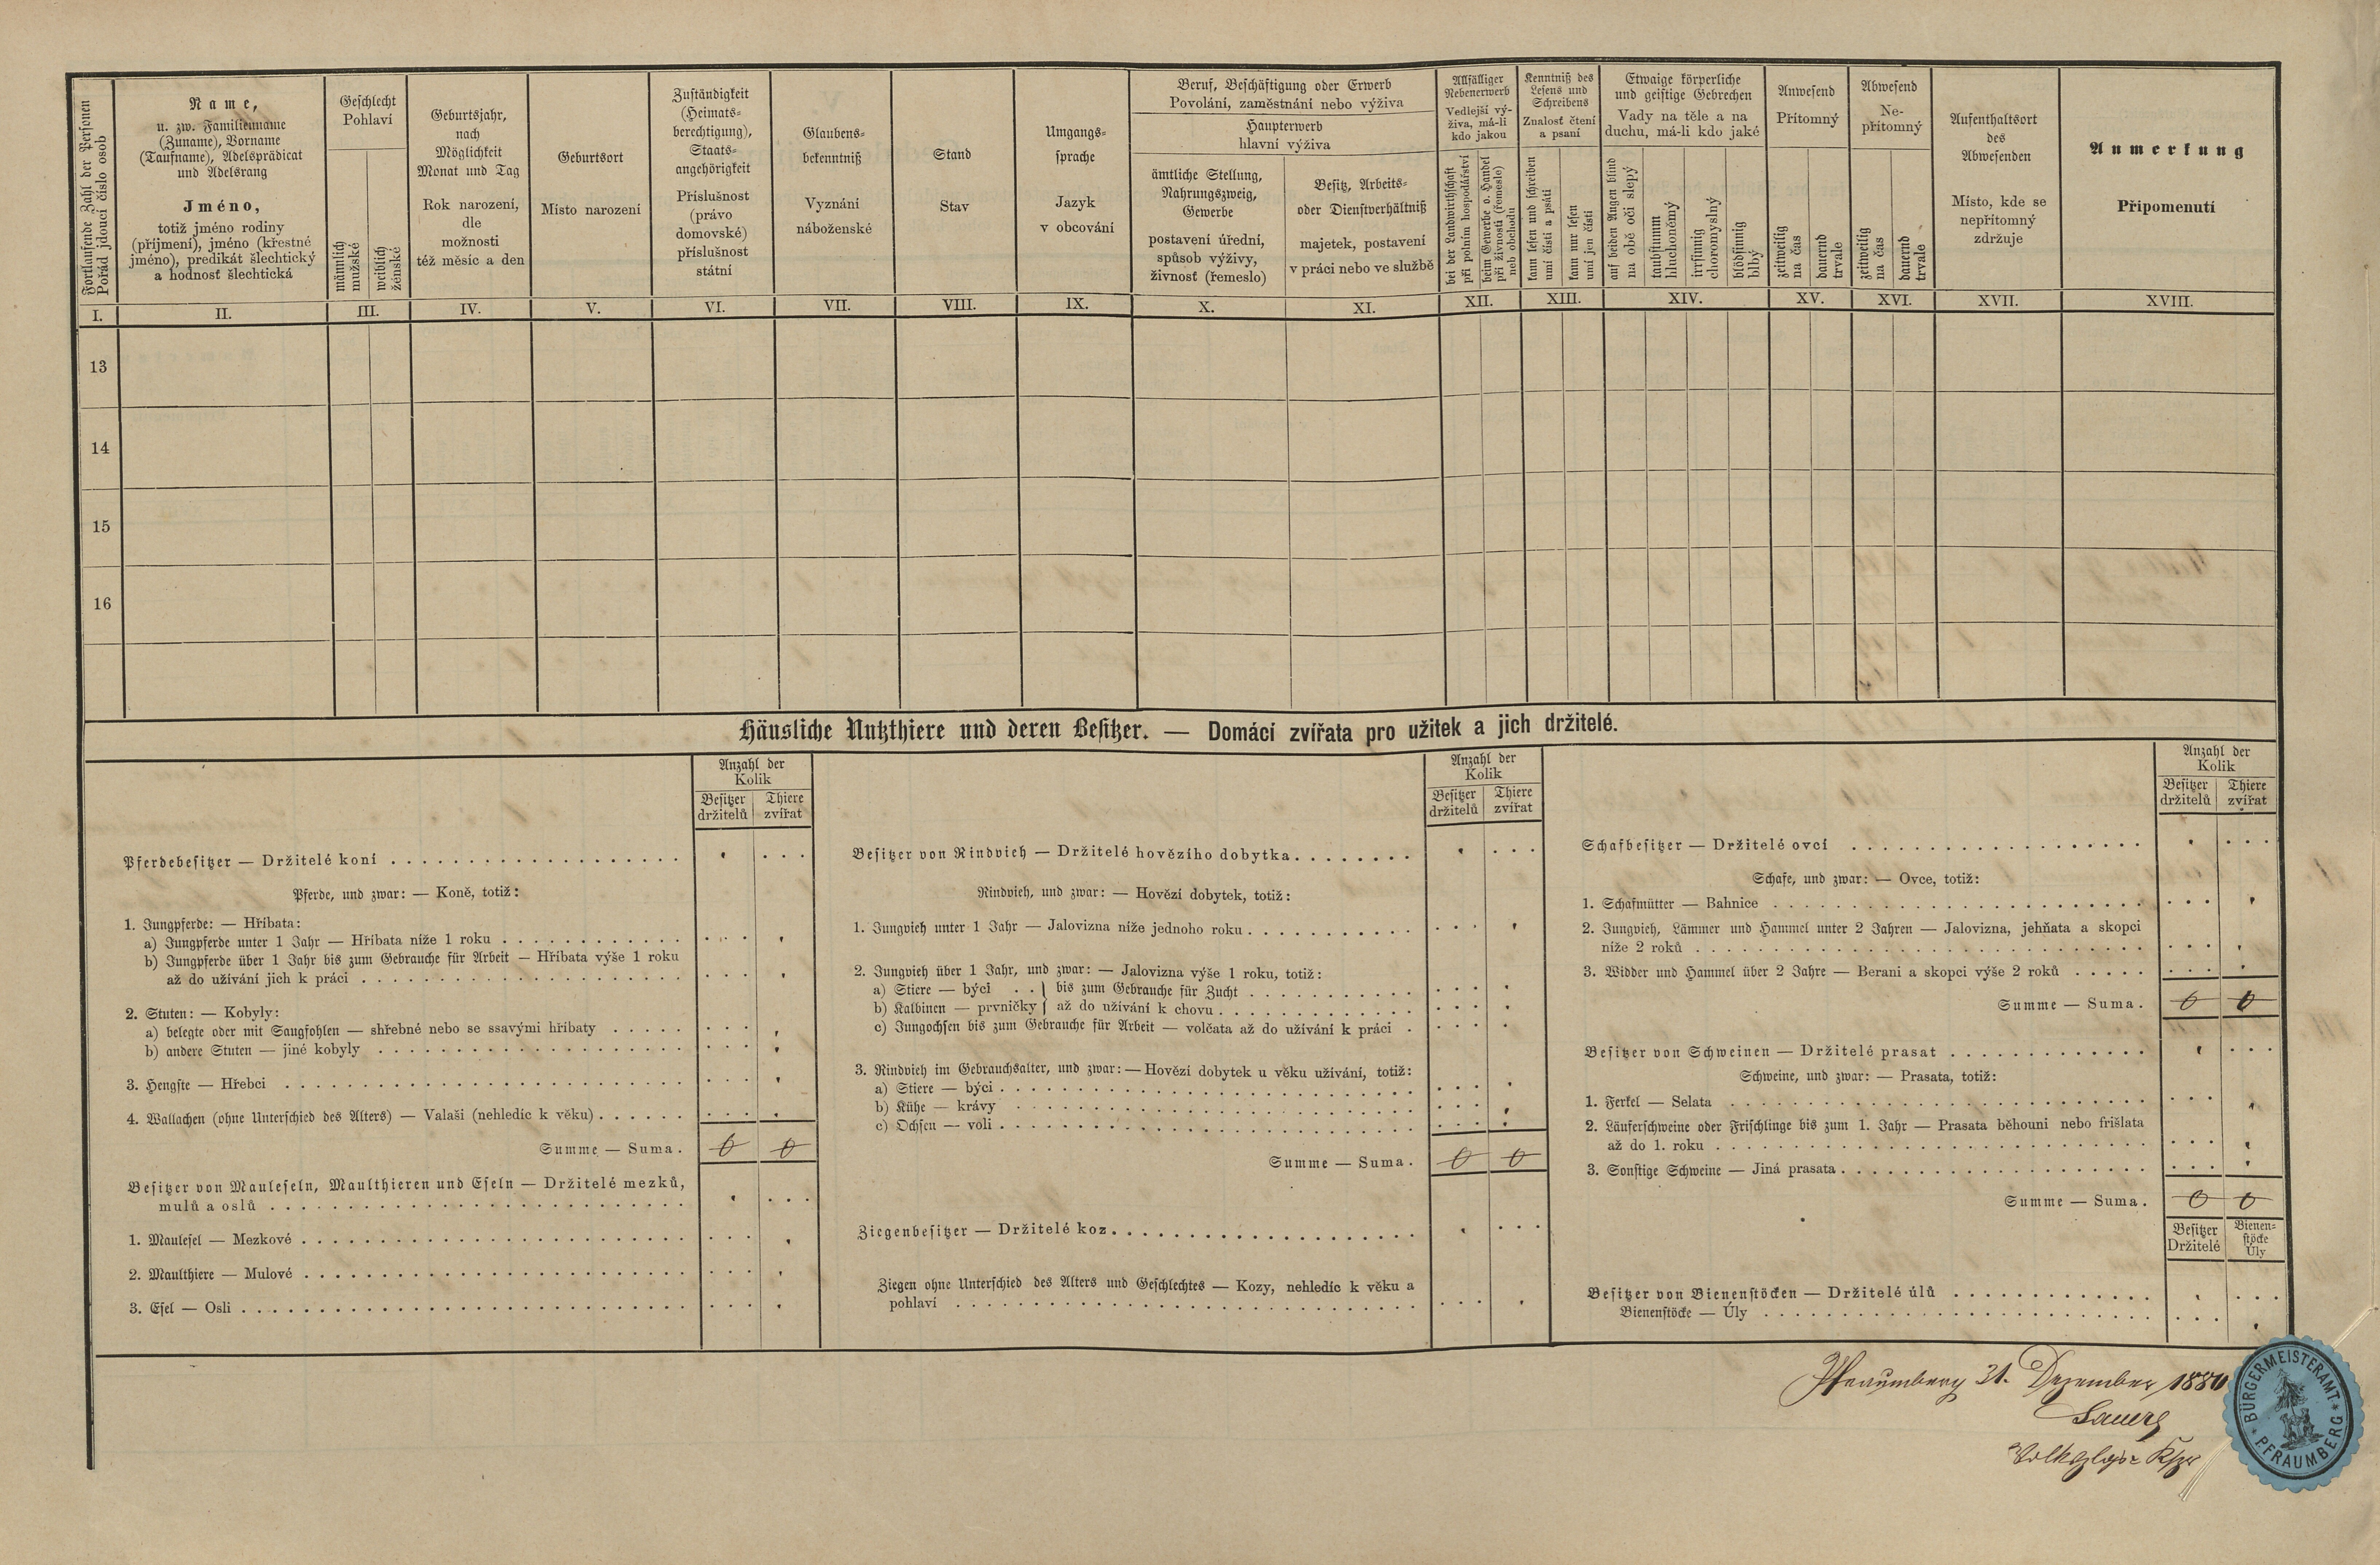 Fortlaufende Zahl der Personen
Pořád jdoucí číslo osob
Name,
u. zw. Familienname
(Zuname), Vorname
(Taufname), Adelsprädicat
und Adelsrang
Jméno,
totiž jméno rodiny
(příjmení), jméno (křestné
jméno), predikát šlechtický
a hodnosť šlechtická
Geschlecht
Pohlaví
männlich
mužské
weiblich
ženské
Geburtsjahr,
nach
Möglichkeit
Monat und Tag
Rok narození,
dle
možnosti
též měsíc a den
Geburtsort
Místo narození
Zuständigkeit
(Heimats-
berechtigung),
Staats-
angehörigkeit
Příslušnost
(právo
domovské)
příslušnost
státní
Glaubens-
bekenntniß
Vyznání
náboženské
Stand
Stav
Umgangs-
sprache
Jazyk
v obcování
Beruf, Beschäftigung oder Erwerb
Povolání, zaměstnání nebo výživa
Haupterwerb
hlavní výživa
ämtliche Stellung,
Nahrungszweig,
Gewerbe
postavení úřední,
spůsob výživy,
živnosť (řemeslo)
Besitz, Arbeits-
oder Dienstverhältniß
majetek, postavení
v práci nebo ve službě
Allfälliger
Nebenerwerb
Vedlejší vý-
živa, má-li
kdo jakou
bei der Landwirthschaft
při polním hospodářství
beim Gewerbe o. Handel
při živnosti (řemesle)
neb obchodu
Kenntniß des
Lesens und
Schreibens
Znalosť čtení
a psaní
kann lesen und schreiben
umí čísti a psáti
kann nur lesen
umí jen čísti
Etwaige körperliche
und geistige Gebrechen
Vady na těle a na
duchu, má-li kdo jaké
auf beiden Augen blind
na obě oči slepý
taubstumm
hluchoněmý
irrsinnig
choromyslný
blödsinnig
blbý
Anwesend
Přítomný
zeitweilig
na čas
dauernd
trvale
Abwesend
Ne-
přítomný
zeitweilig
na čas
dauernd
trvale
Aufenthaltsort
des
Abwesenden
Místo, kde se
nepřítomný
zdržuje
Anmerkung
Připomenutí
I. II. III. IV. V. VI. VII. VIII. IX. X. XI. XII. XIII. XIV. XV. XVI. XVII. XVIII.
13
14
15
16
Häusliche Nutzthiere und deren Besitzer. — Domácí zvířata pro užitek a jich držitelé.
Anzahl der
Kolik
Besitzer Thiere
držitelů zvířat
Pferdebesitzer — Držitelé koní
Pferde, und zwar: — Koně, totiž:
1. Jungpferde: — Hříbata:
a) Jungpferde unter 1 Jahr — Hříbata níže 1 roku
b) Jungpferde über 1 Jahr bis zum Gebrauche für Arbeit — Hříbata výše 1 roku
až do užívání jich k práci
2. Stuten: — Kobyly:
a) belegte oder mit Saugfohlen — shřebné nebo se ssavými hříbaty
b) andere Stuten — jiné kobyly
3. Hengste — Hřebci
4. Wallachen (ohne Unterschied des Alters) — Valaši (nehledíc k věku)
Summe — Suma. 0 0
Besitzer von Mauleseln, Maulthieren und Eseln — Držitelé mezků,
mulů a oslů
1. Maulesel — Mezkové
2. Maulthiere — Mulové
3. Esel — Osli
Anzahl der
Kolik
Besitzer Thiere
držitelů zvířat
Besitzer von Rindvieh — Držitelé hovězího dobytka
Rindvieh, und zwar: — Hovězí dobytek, totiž:
1. Jungvieh unter 1 Jahr — Jalovizna níže jednoho roku
2. Jungvieh über 1 Jahr, und zwar: — Jalovizna výše 1 roku, totiž:
a) Stiere — býci . . } bis zum Gebrauche für Zucht
b) Kalbinen — prvničky } až do užívání k chovu
c) Jungochsen bis zum Gebrauche für Arbeit — volčata až do užívání k práci
3. Rindvieh im Gebrauchsalter, und zwar: — Hovězí dobytek u věku užívání, totiž:
a) Stiere — býci
b) Kühe — krávy
c) Ochsen — voli
Summe — Suma. 0 0
Ziegenbesitzer — Držitelé koz
Ziegen ohne Unterschied des Alters und Geschlechtes — Kozy, nehledíc k věku a
pohlaví
Anzahl der
Kolik
Besitzer Thiere
držitelů zvířat
Schafbesitzer — Držitelé ovcí
Schafe, und zwar: — Ovce, totiž:
1. Schafmütter — Bahnice
2. Jungvieh, Lämmer und Hammel unter 2 Jahren — Jalovizna, jehňata a skopci
níže 2 roků
3. Widder und Hammel über 2 Jahre — Berani a skopci výše 2 roků
Summe — Suma. 0 0
Besitzer von Schweinen — Držitelé prasat
Schweine, und zwar: — Prasata, totiž:
1. Ferkel — Selata
2. Läuferschweine oder Frischlinge bis zum 1. Jahr — Prasata běhouni nebo frišlata
až do 1. roku
3. Sonstige Schweine — Jiná prasata
Summe — Suma. 0 0
Besitzer Bienen-
Držitelé stöcke
Úly
Besitzer von Bienenstöcken — Držitelé úlů
Bienenstöcke — Úly
Pfraumberg 31. Dezember 1880
BÜRGERMEISTERAMT
PFRAUMBERG